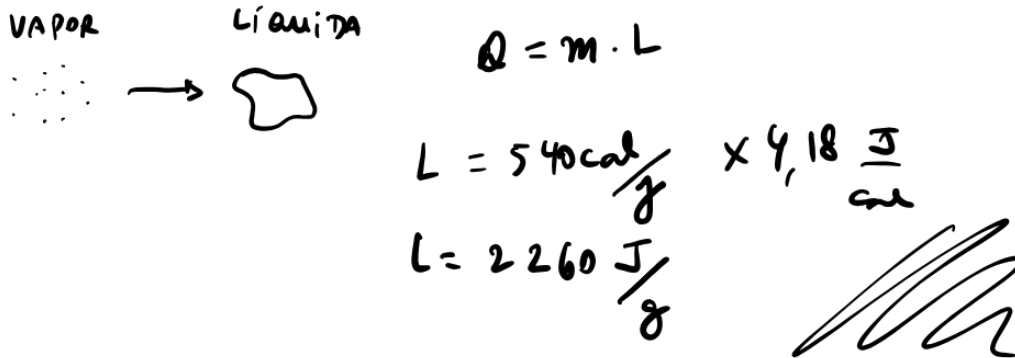 VAPOR
LÍQUIDA
Q = m · L
L = 540 cal/g × 4,18 J/cal
L = 2260 J/g